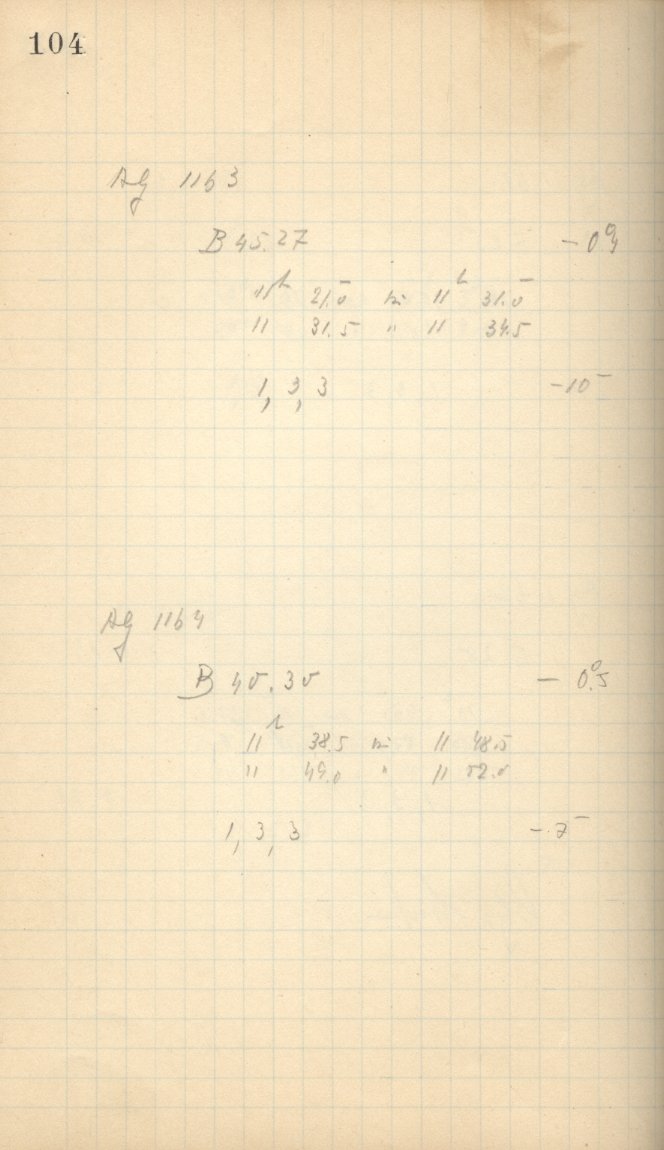 104
AG 1163
B 45.27 - 0°4
11h 21.5 bis 11h 31.5
11 31.5 " 11 34.5
1, 3, 3 -10-
AG 1164
B 45.35 - 0°.5
11h 38.5 bis 11 48.5
11 49.0 " 11 52.0
1, 3, 3 -7-